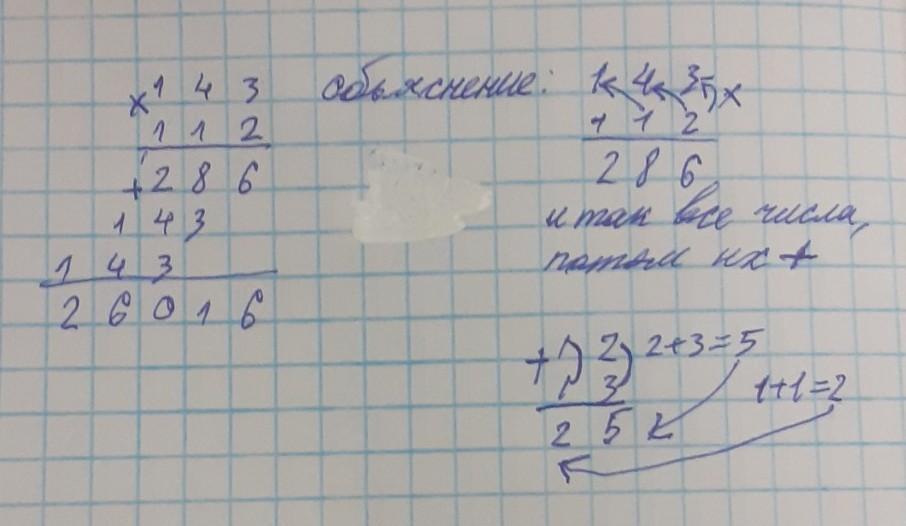 × 1 4 3
1 1 2
+ 2 8 6
1 4 3
1 4 3
2 6 0 1 6
обьяснение: 1 4 3 ×
1 1 2
2 8 6
и так все числа,
потом их +
+ 1 2 2+3=5
1 3 1+1=2
2 5